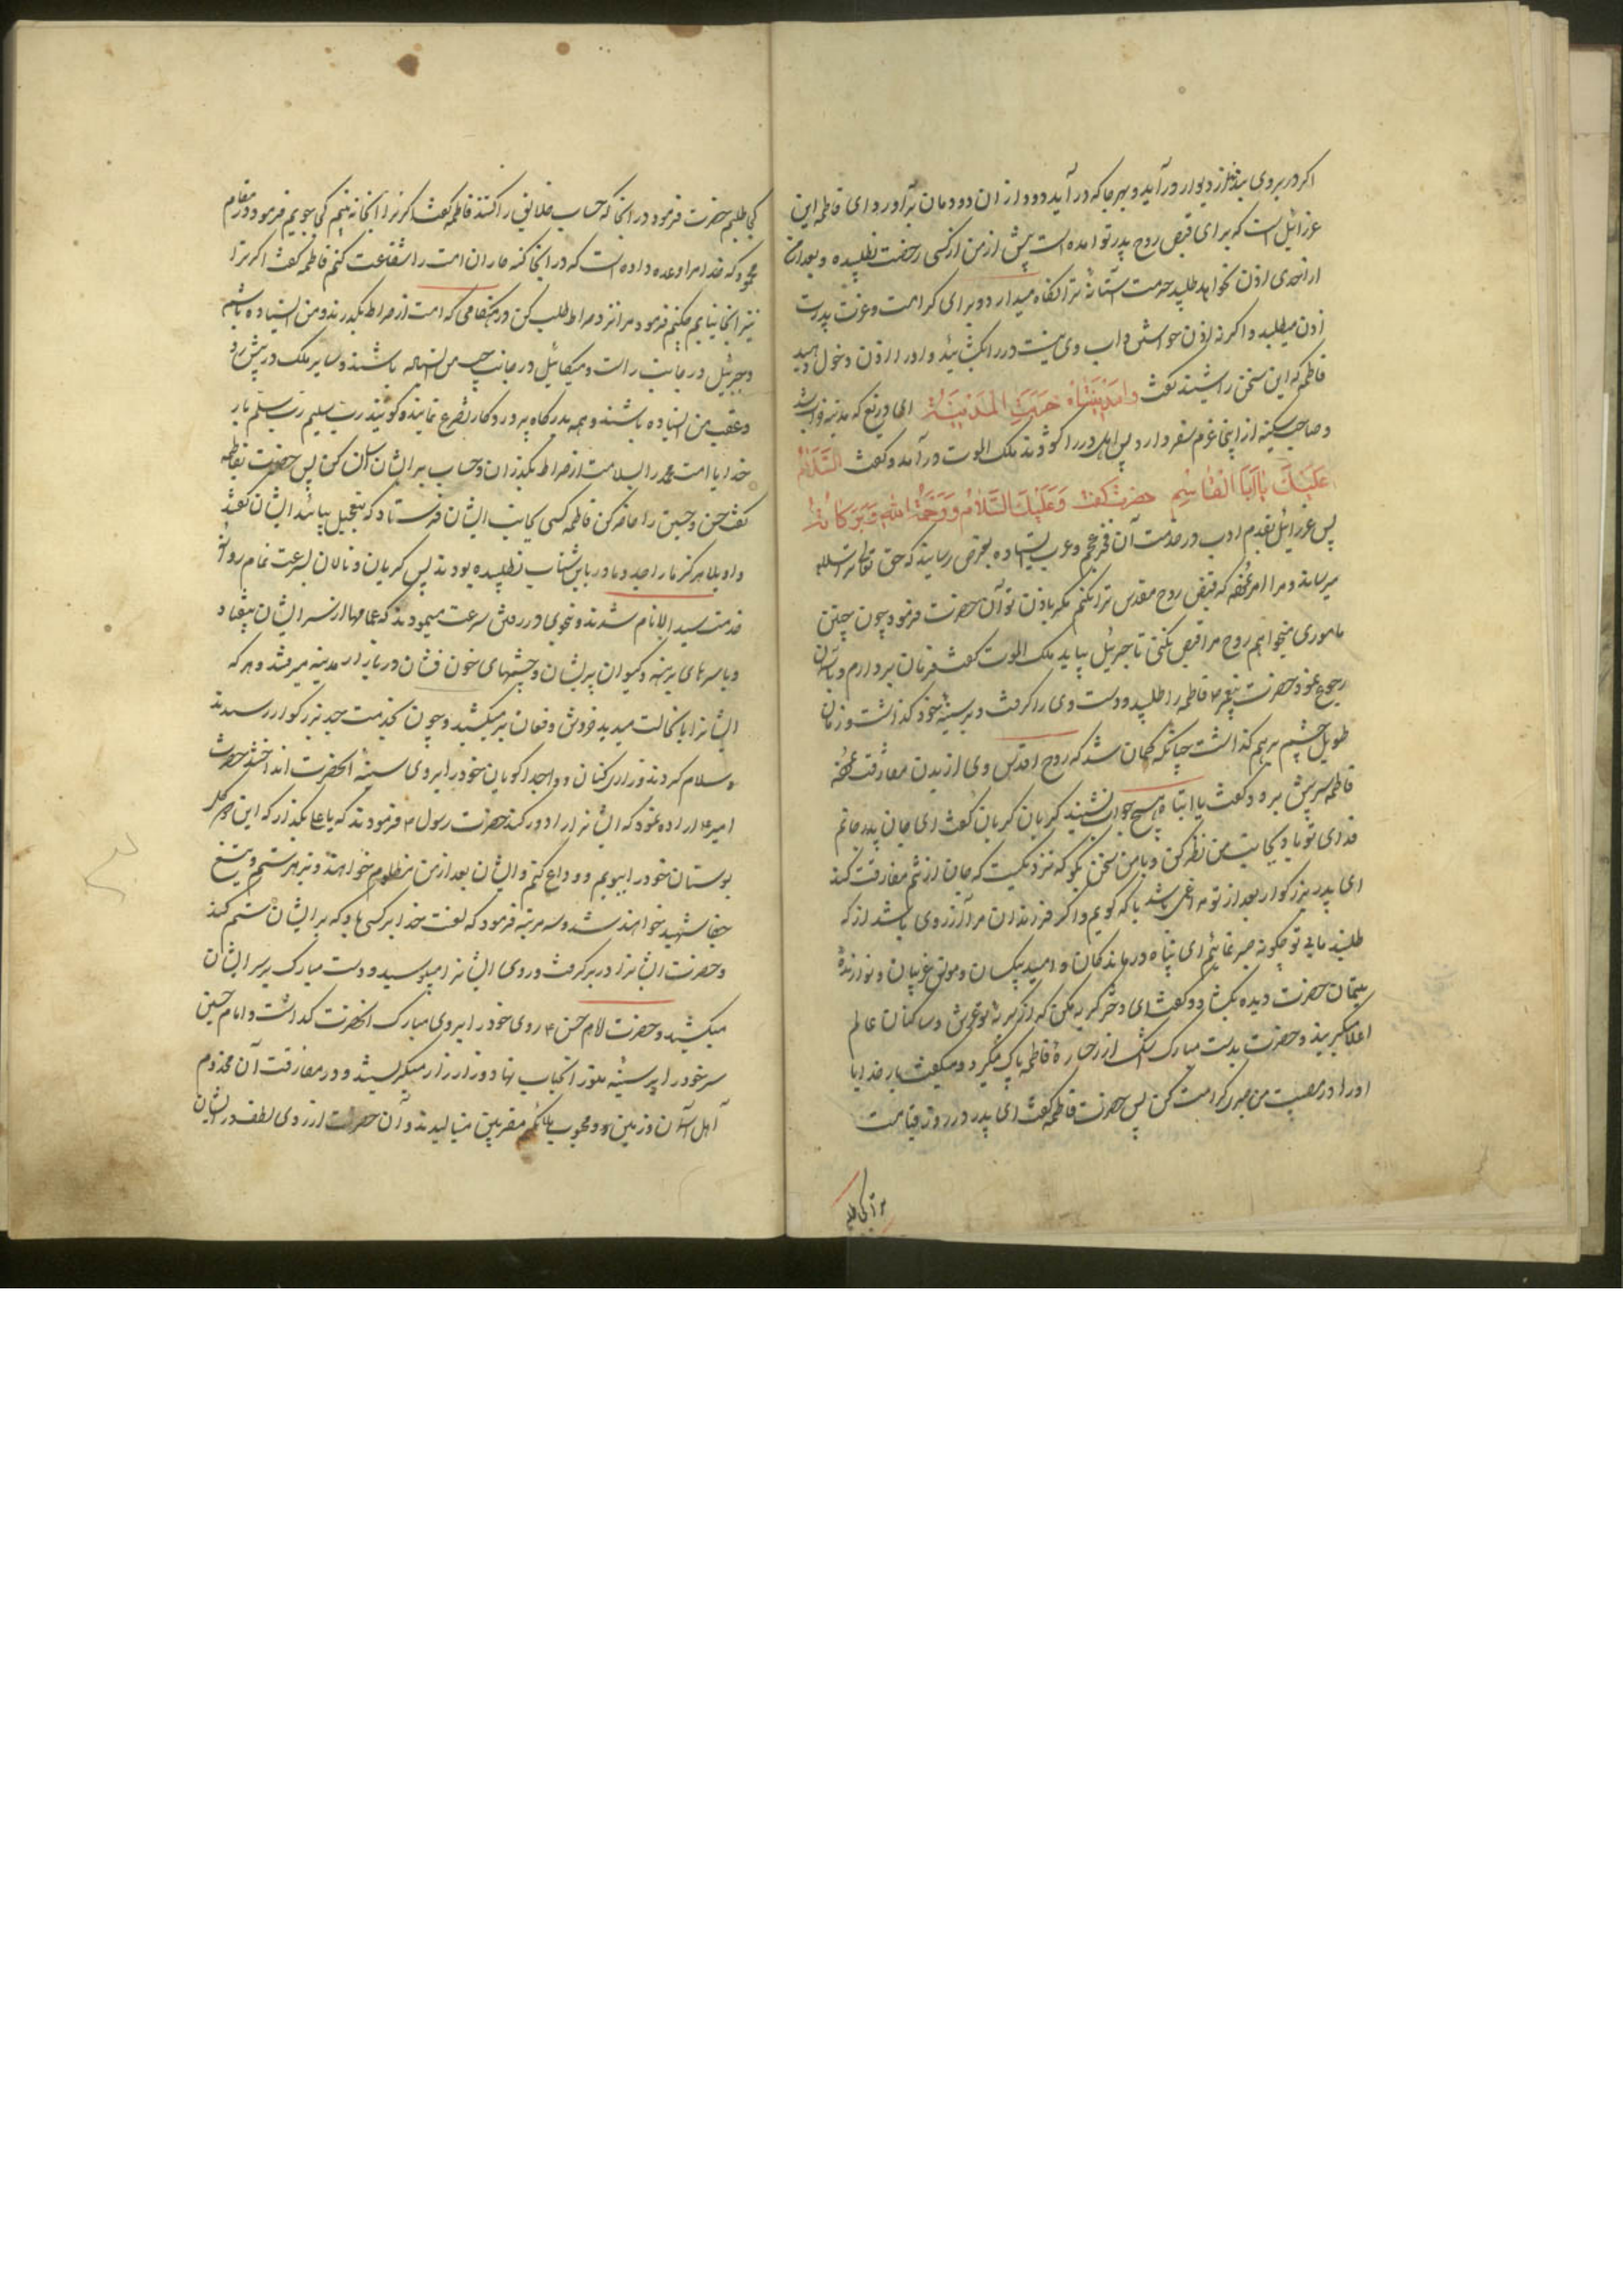 اکر در بروی بندند از دیوار در آید و بهر جا که در آید دود از ان دودمان برآورد ای فاطمه این
عزرائیل است که برای قبض روح پدر تو امده است پیش از من از کسی رخصت نطلبیده و بعد از من
از احدی اذن نخواهد طلبید حرمت آستانهٔ ترا نکاه میدارد و برای کرامت و عزت پدرت
اذن میطلبد و اکر نه اذن خواستن داب وی نیست در را بکشائید و او را اذن دخول دهید
فاطمه که این سخن را شنید کفت وا مدینتاه خربت المدینة ای دریغ که مدینه خراب شد
و صاحب سکینه از اینجا عزم سفر دارد پس اهل در را کشودند ملک الموت در آمد و کفت السلام
علیک یا ابا القاسم حضرت کفت و علیک السلام و رحمة الله و برکاته
پس عزرائیل بقدم ادب در خدمت آن فخر عجم و عرب ایستاده بعرض رسانید که حق تعالی ترا سلام
میرساند و مرا امر نموده که قبض روح مقدس ترا نکنم مکر باذن تو آن حضرت فرمود چون چنین
ماموری میخواهم روح مرا قبض نکنی تا جبرئیل بیاید ملک الموت کفت فرمان بردارم و باسمان
رجوع نمود حضرت پیغمبر ۴ فاطمه را طلبید و دست وی را کرفت و بر سینهٔ خود کذاشت و زمان
طویل چشم بر هم کذاشت چنانکه کمان شد که روح اقدس وی از بدن مفارقت نموده
فاطمه سر پیش برد و کفت یا ابتاه هیچ جواب نشنید کریان کریان کفت ای جان پدر جانم
فدای تو باد بجانب من نظر کن و با من سخن بکو که نزدیکست که جان از تنم مفارقت کند
ای پدر بزرکوار بعد از تو مرا غمی باشد با که کویم و اکر فرزندان مرا آرزوی باشد از که
طلبند ما بی تو چکونه صبر نمائیم ای پناه درماندکان و امید بیکسان و مونس غریبان و نوازندهٔ
یتیمان حضرت دیده بکشاد و کفت ای دختر کریه مکن که از کریهٔ تو عرش و ساکنان عالم
اعلا میکریند و حضرت بدست مبارک اشک از رخسارهٔ فاطمه پاک میکرد و میکفت بار خدایا
او را در مصیبت من صبر کرامت کن پس حضرت فاطمه کفت ای پدر در روز قیامت
ترا کجا طلبم
کجا طلبم حضرت فرمود در انجا که حساب خلائق را کنند فاطمه کفت اکر ترا انجا نه بینم کجا جویم فرمود در مقام
محمود که خدا مرا وعده داده است که در انجا کنه کاران امت را شفاعت کنم فاطمه کفت اکر ترا
نیز انجا نیابم چکنم فرمود مرا نزد صراط طلب کن در هنکامی که امت از صراط بکذرند و من ایستاده باشم
و جبرئیل در جانب راست و میکائیل در جانب چپ من ایستاده باشند و سایر ملک در پیش رو
و عقب من ایستاده باشند و همه بدرکاه پروردکار تضرع نمایند و کویند رب سلم رب سلم بار
خدایا امت محمد را بسلامت از صراط بکذران و حساب بر ایشان آسان کن پس حضرت بفاطمه
کفت حسن و حسین را حاضر کن فاطمه کسی بجانب ایشان فرستاد که بتعجیل بیائید ایشان کفتند
واویلا هرکز ما را جد و مادر باین شتاب نطلبیده بودند پس کریان و نالان بسرعت تمام روانهٔ
خدمت سید الانام شدند و بنحوی در رفتن سرعت مینمودند که عمامها از سر ایشان بیفتاد
و با سرهای برهنه و کیسوان پریشان و چشمهای خون فشان در بازار مدینه میرفتند و هر که
ایشانرا با نحالت میدید خروش و فغان بر میکشید و چون بخدمت جد بزرکوار رسیدند
سلام کردند و زاری کنان و واجدا کویان خود را بروی سینهٔ انحضرت انداختند حضرت
امیر ۴ اراده نمود که ایشانرا دور کند حضرت رسول ۴ فرمودند که یا علی بکذار که این دو کل
بوستان خود را ببویم و وداع کنم و ایشان بعد از من مظلوم خواهند و بزهر ستم و تیغ
جفا شهید خواهند شد و سه مرتبه فرمود که لعنت خدا بر کسی باد که بر ایشان ستم کند
و حضرت ایشانرا در بر کرفت و روی ایشانرا میبوسید و دست مبارک بر سر ایشان
میکشید و حضرت امام حسن ۴ روی خود را بروی مبارک انحضرت کذاشت و امام حسین
سر خود را بر سینهٔ منور انجناب نهاد و زار زار میکریستند و در مفارقت آن مخدوم
اهل آسمان و زمین و محبوب ملائکه مقربین مینالیدند و آن حضرت از روی لطف در ایشان